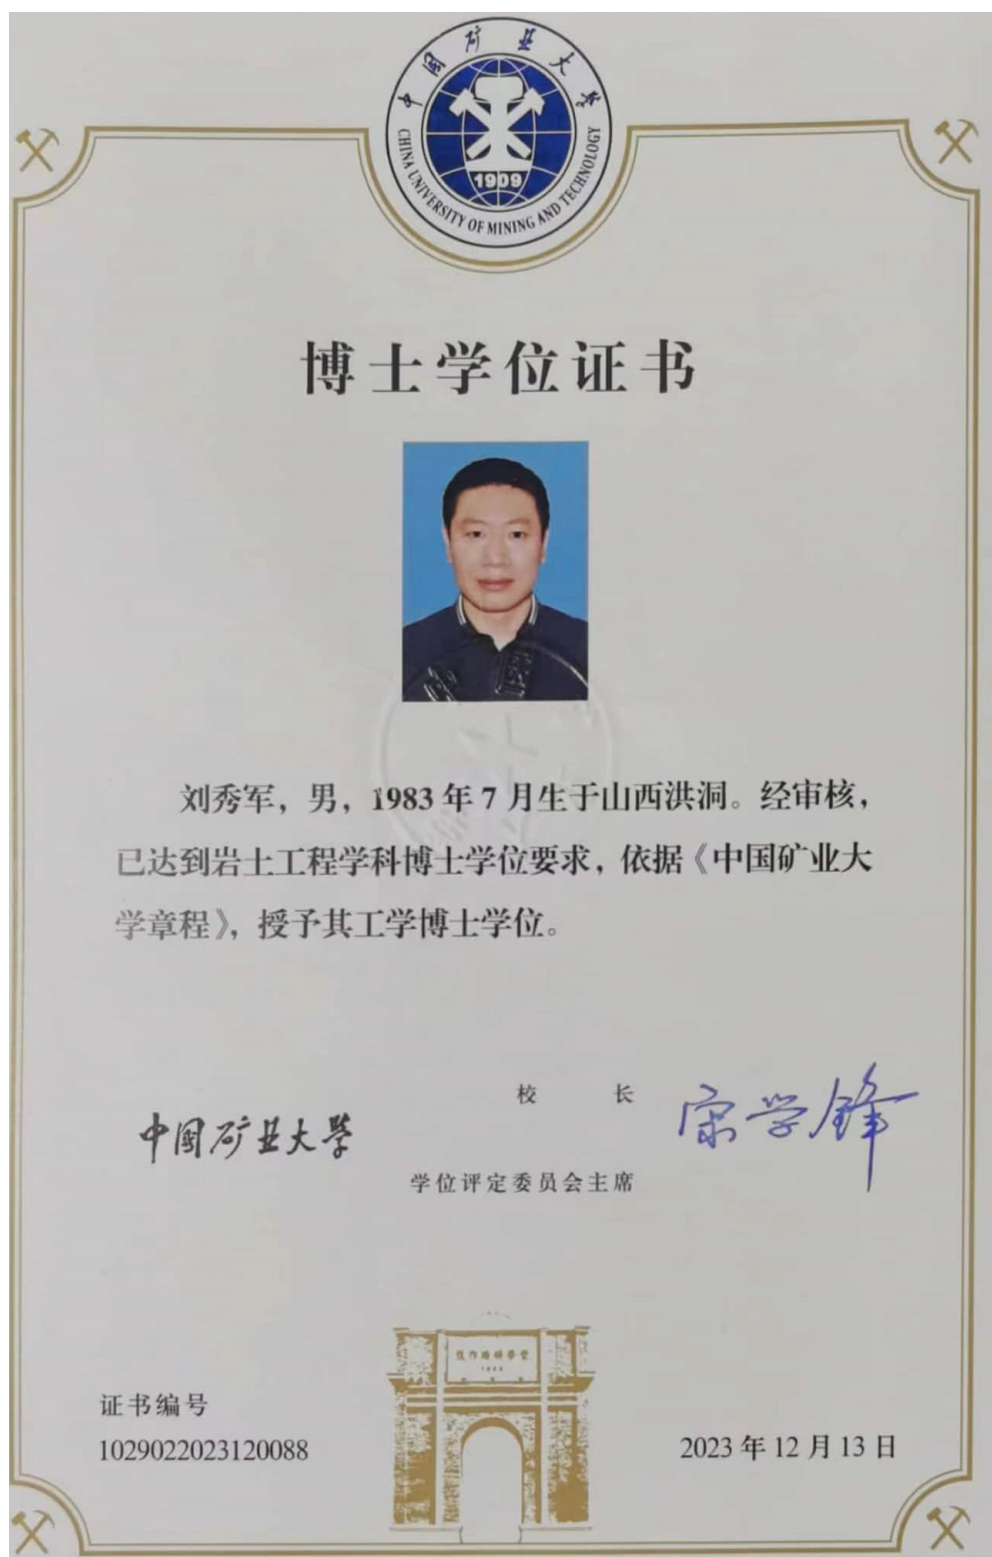 中国矿业大学
CHINA UNIVERSITY OF MINING AND TECHNOLOGY
1909
博士学位证书
刘秀军，男，1983年7月生于山西洪洞。经审核，
已达到岩土工程学科博士学位要求，依据《中国矿业大
学章程》，授予其工学博士学位。
校 长
宋学锋
中国矿业大学
学位评定委员会主席
证书编号
1029022023120088
2023年12月13日